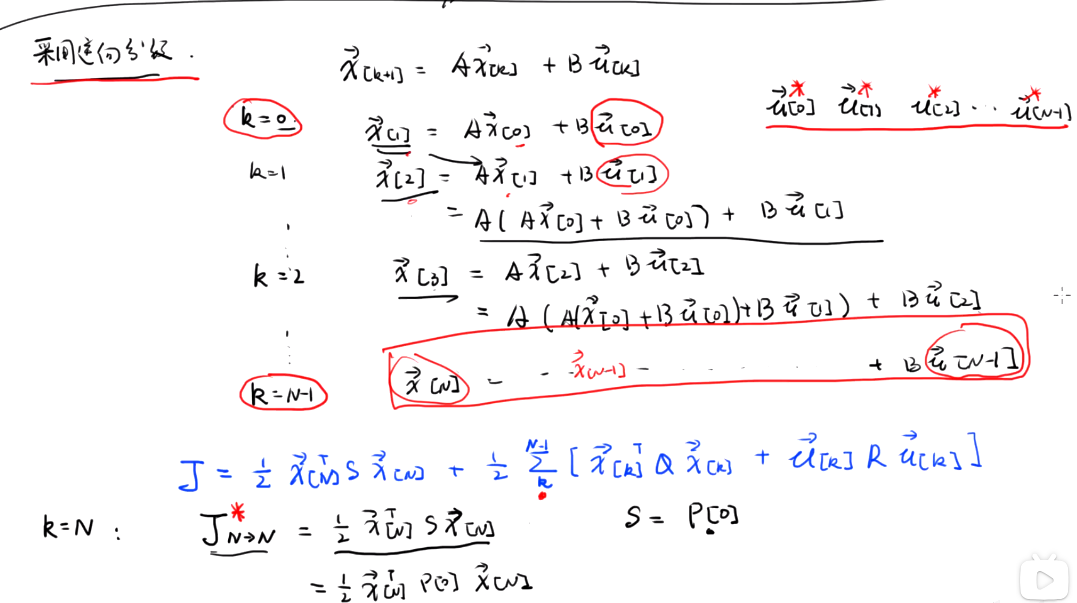 采用逆向分级.
x⃗[k+1] = A x⃗[k] + B u⃗[k]
u⃗[0]* u⃗[1]* u⃗[2]* ... u⃗[N-1]*
k=0 x⃗[1] = A x⃗[0] + B u⃗[0]
k=1 x⃗[2] = A x⃗[1] + B u⃗[1]
= A( A x⃗[0] + B u⃗[0] ) + B u⃗[1]
k=2 x⃗[3] = A x⃗[2] + B u⃗[2]
= A (A(x⃗[0] + B u⃗[0]) + B u⃗[1]) + B u⃗[2]
k=N-1 x⃗[N] = - · x⃗[N-1] - · · · · + B u⃗[N-1]
J = 1/2 x⃗[N]ᵀ S x⃗[N] + 1/2 Σ_k^{N-1} [ x⃗[k]ᵀ Q x⃗[k] + u⃗[k] R u⃗[k] ]
k=N : J*_{N→N} = 1/2 x⃗[N]ᵀ S x⃗[N] S = P[0]
= 1/2 x⃗[N]ᵀ P[0] x⃗[N]